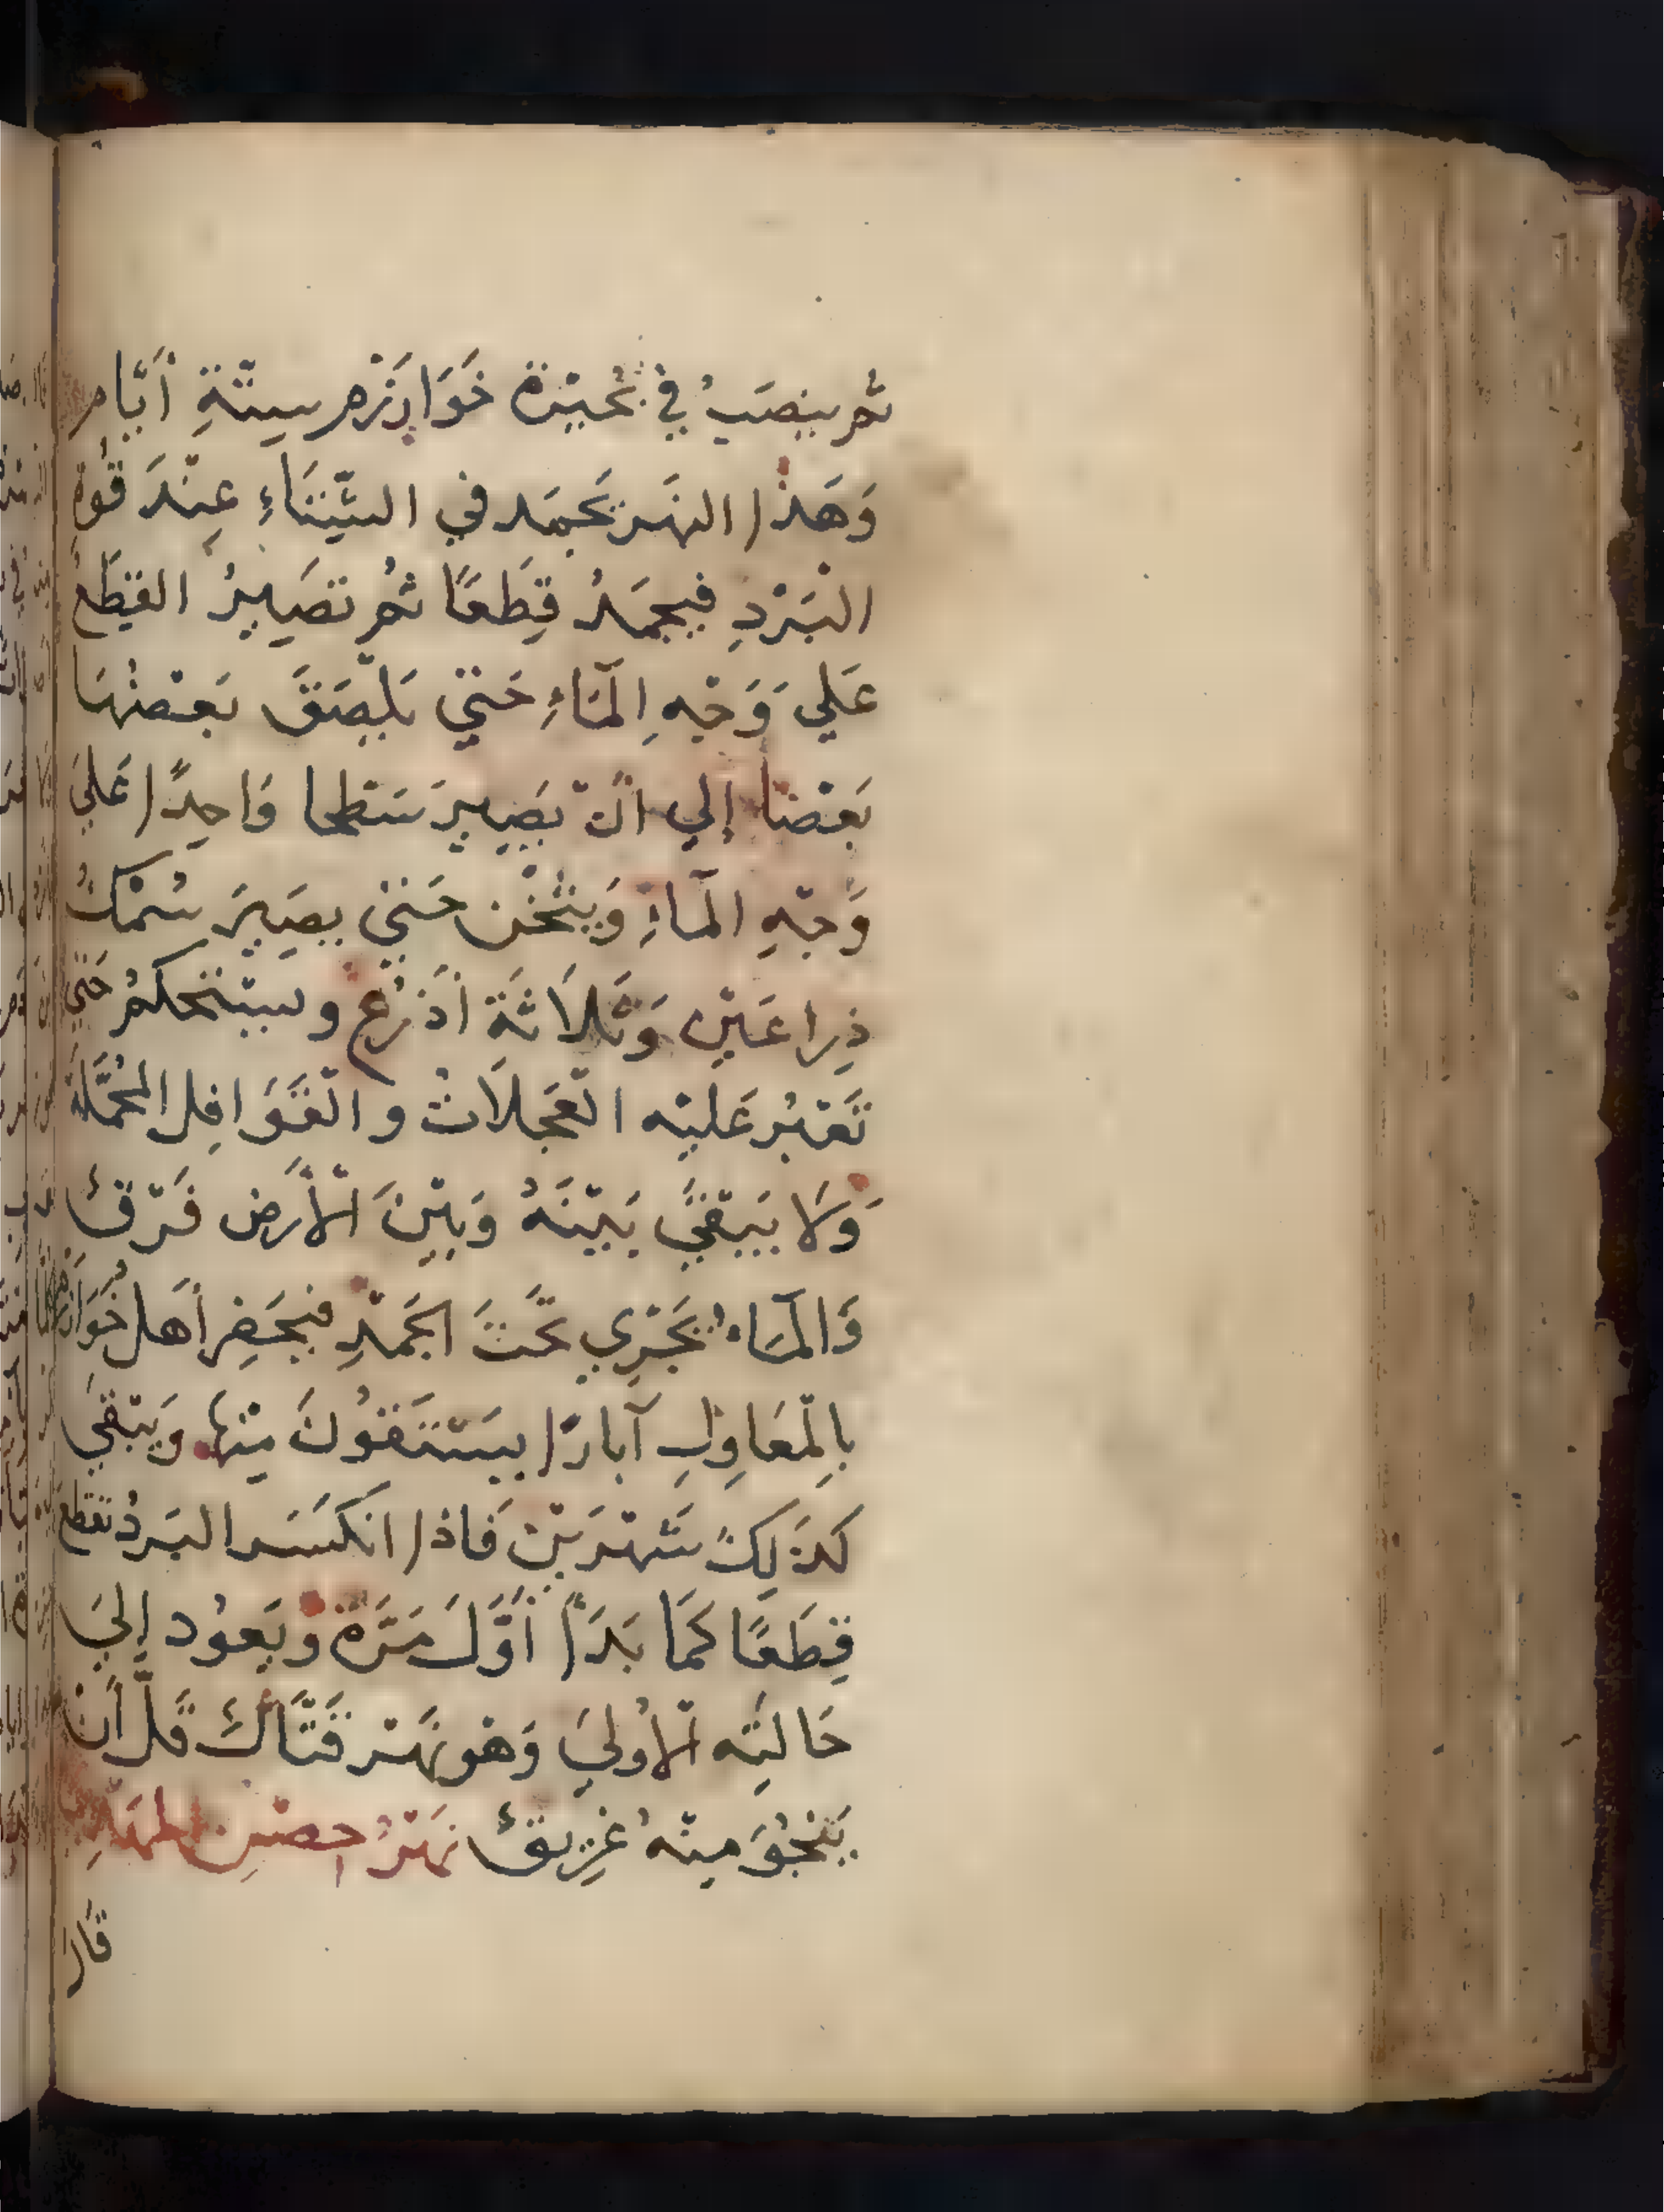 ثم ينصَبُ في بُحَيْرَة خَوَارِزْم سِتَّةِ أَيَّام
وَهَذَا النهَر يَجمَد في الشِّتَاءِ عِنْدَ قُوة
البَرْدِ فيجمَدُ قِطَعًا ثم تصَيِيرُ القِطَعُ
عَلي وَجْهِ المَآءِ حَتي يَلْصَقَ بَعْضُهَا
بَعْضاً إلي انْ يَصِيرَ سَطحا وَاحِدًا عَلَيَ
وَجْهِ المآءِ وَيثْخُن حَتي يصِيرَ سُمْكُ
ذِراعَيْنِ وَثَلاَثَةَ أَذْرُعٍ ويسْتحكمُ حَتي
تَعْبُر عَليْه الْعَجَلاَتُ والْقَوَافِل المُحَمَّلَة
وَلاَ يَبْقَيَ بَيْنَهُ وَبَيْنَ الْأَرض فَرْقٌ
وَالمَآءُ يَجْرِي تَحْتَ الجَمْدِ فيَحفِر أَهل خُوَارزم
بِالْمَعَاوِلِ آبارًا يَسْتَقُونَ مِنْها وَيَبْقَيَ
كذَلِكَ شَهْرَيْنِ فَاذا انكَسَر البَردُ تقطع
قِطَعًا كَمَا بَدَأ أَوَّلَ مَرَّة وَيَعُود إِليَ
حَالَتِه الْأُوليَ وَهْو نَهْر قَتَّالٌ قَلَّ أَنْ
يَنْجُوَ مِنْهُ غَرِيقٌ نَهْرُ حصْنِ المَهْدِ
قَالَ